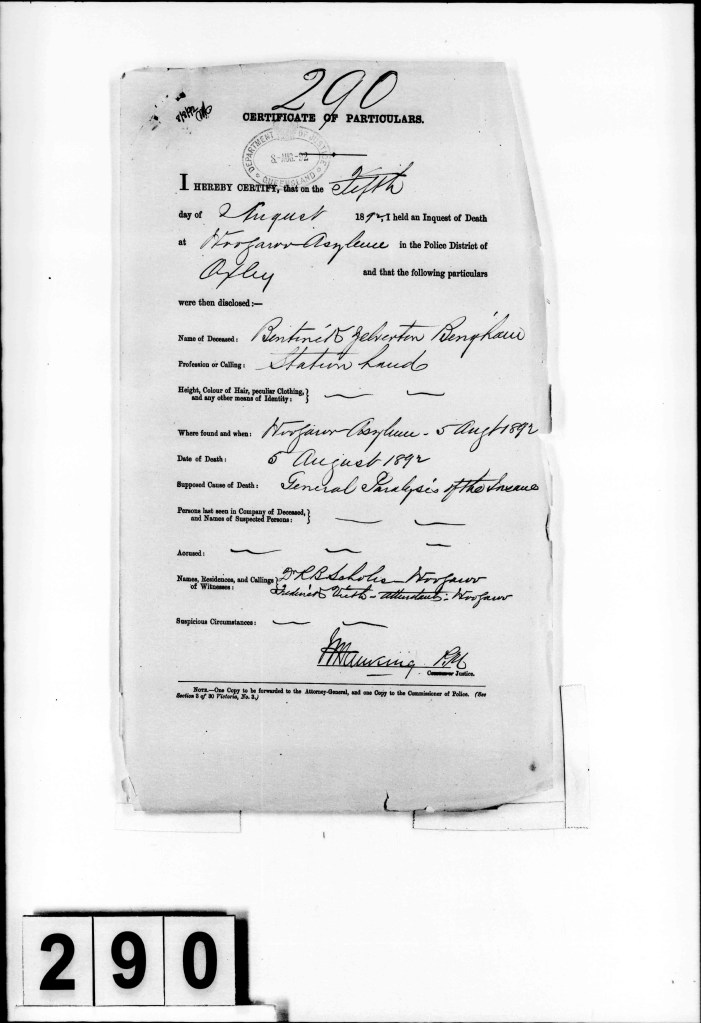 290
8/8/92
CERTIFICATE OF PARTICULARS.
DEPARTMENT OF JUSTICE
8-AUG.-92
QUEENSLAND
I HEREBY CERTIFY, that on the Fifth
day of August 1892, I held an Inquest of Death
at Woogaroo Asylum in the Police District of
Oxley and that the following particulars
were then disclosed:—
Name of Deceased: Bentinck Yelverton Bingham
Profession or Calling: Station hand
Height, Colour of Hair, peculiar Clothing, and any other means of Identity: — —
Where found and when: Woogaroo Asylum - 5 Augt 1892
Date of Death: 5 August 1892
Supposed Cause of Death: General Paralysis of the Insane
Persons last seen in Company of Deceased, and Names of Suspected Persons: — —
Accused: — — —
Names, Residences, and Callings of Witnesses: Dr R B Scholes - Woogaroo
Frederick - attendant - Woogaroo
Suspicious Circumstances: — —
Manning P.M
Justice.
NOTE.—One Copy to be forwarded to the Attorney-General, and one Copy to the Commissioner of Police. (See
Section 5 of 30 Victoria, No. 3.)
290